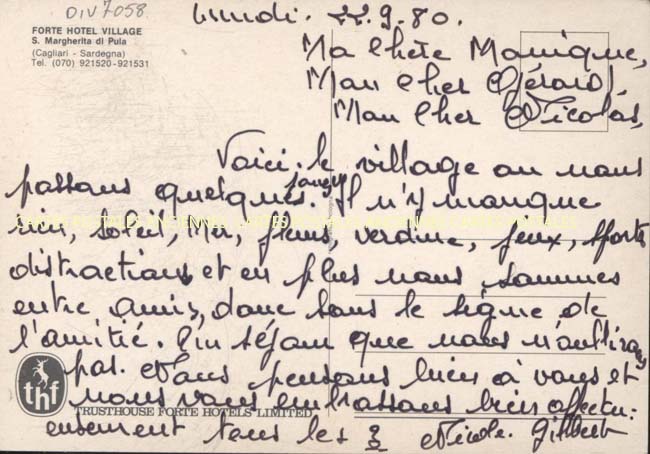 DIV7058
Lundi. 22.9.80.
FORTE HOTEL VILLAGE
S. Margherita di Pula
(Cagliari - Sardegna)
Tel. (070) 921520-921531
Ma Chère Monique,
Mon Cher Gérard,
Mon Cher Nicolas,
Voici le village où nous
passons quelques jours. Il n'y manque
rien, soleil, Mer, fleurs, verdure, jeux, sports
distractions et en plus nous sommes
entre amis, donc sous le signe de
l'amitié. Un séjour que nous n'oublirons
pas. Nous pensons bien à vous et
nous vous embrassons bien affectu-
eusement tous les 3 Nicole. Gilbert
thf
TRUSTHOUSE FORTE HOTELS LIMITED